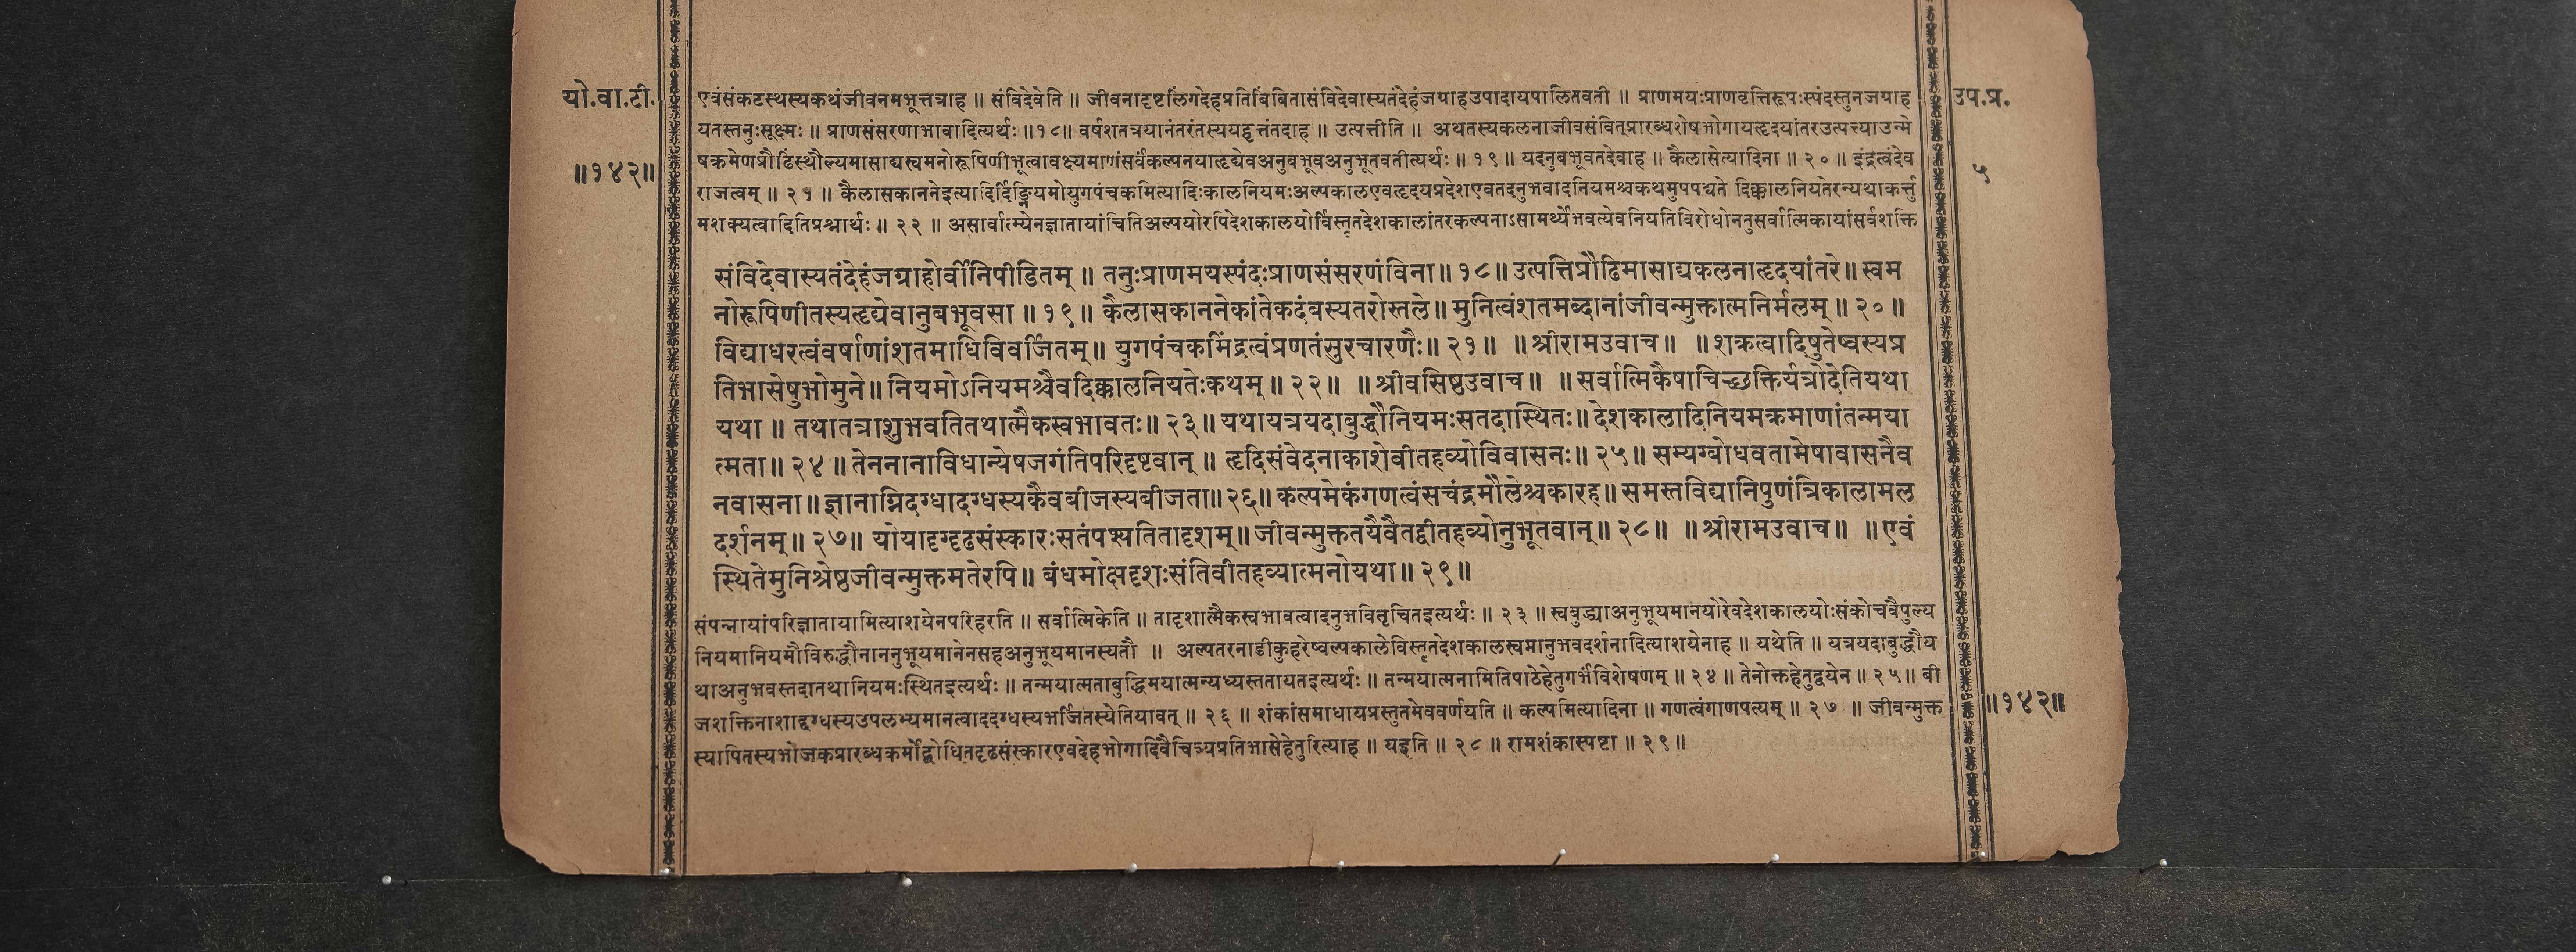 यो.वा.टी.
॥१४२॥
उप.प्र.
५
एवंसंकटस्थस्यकथंजीवनमभूत्तत्राह ॥ संविदेवेति ॥ जीवनादृष्टलिंगदेहप्रतिबिंबितासंविदेवास्यतंदेहंजग्राहउपादायपालितवती ॥ प्राणमयःप्राणवृत्तिरूपःस्पंदस्तुनजग्राह
यतस्तनुःसूक्ष्मः ॥ प्राणसंसरणाभावादित्यर्थः ॥१८॥ वर्षशतत्रयानंतरंतस्ययद्वृत्तंतदाह ॥ उत्पत्तीति ॥ अथतस्यकलनाजीवसंवित्प्रारब्धशेषभोगायहृदयांतरउत्पत्त्याउन्मे
षक्रमेणप्रौढिंस्थौल्यमासाद्यस्वमनोरूपिणीभूत्वावक्ष्यमाणंसर्वंकल्पनयाहृद्येवअनुबभूवअनुभूतवतीत्यर्थः ॥ १९ ॥ यदनुबभूवतदेवाह ॥ कैलासेत्यादिना ॥ २० ॥ इंद्रत्वंदेव
राजत्वम् ॥ २१ ॥ कैलासकाननेइत्यादिर्दिङ्नियमोयुगपंचकमित्यादिःकालनियमःअल्पकालएवहृदयप्रदेशएवतदनुभवादनियमश्चकथमुपपद्यते दिक्कालनियतेरन्यथाकर्त्तु
मशक्यत्वादितिप्रश्नार्थः ॥ २२ ॥ असार्वात्म्येनज्ञातायांचितिअल्पयोरपिदेशकालयोर्विस्तृतदेशकालांतरकल्पनाऽसामर्थ्येभवत्येवनियतिविरोधोननुसर्वात्मिकायांसर्वशक्ति
संविदेवास्यतंदेहंजग्राहोर्वीनिपीडितम् ॥ तनुःप्राणमयस्पंदःप्राणसंसरणंविना ॥ १८ ॥ उत्पत्तिप्रौढिमासाद्यकलनाहृदयांतरे ॥ स्वम
नोरूपिणीतस्यहृद्येवानुबभूवसा ॥ १९ ॥ कैलासकाननेकांतेकदंबस्यतरोस्तले ॥ मुनित्वंशतमब्दानांजीवन्मुक्तात्मनिर्मलम् ॥ २० ॥
विद्याधरत्वंवर्षाणांशतमाधिविवर्जितम् ॥ युगपंचकमिंद्रत्वंप्रणतंसुरचारणैः ॥ २१ ॥ ॥ श्रीरामउवाच ॥ ॥ शक्रत्वादिषुतेष्वस्यप्र
तिभासेषुभोमुने ॥ नियमोऽनियमश्चैवदिक्कालनियतेःकथम् ॥ २२ ॥ ॥ श्रीवसिष्ठउवाच ॥ ॥ सर्वात्मिकैषाचिच्छक्तिर्यत्रोदेतियथा
यथा ॥ तथातत्राशुभवतितथात्मैकस्वभावतः ॥ २३ ॥ यथायत्रयदाबुद्धौनियमःसतदास्थितः ॥ देशकालादिनियमक्रमाणांतन्मया
त्मता ॥ २४ ॥ तेननानाविधान्येषजगंतिपरिदृष्टवान् ॥ हृदिसंवेदनाकाशेवीतहव्योविवासनः ॥ २५ ॥ सम्यग्बोधवतामेषावासनैव
नवासना ॥ ज्ञानाग्निदग्धादग्धस्यकैवबीजस्यबीजता ॥ २६ ॥ कल्पमेकंगणत्वंसचंद्रमौलेश्चकारह ॥ समस्तविद्यानिपुणंत्रिकालामल
दर्शनम् ॥ २७ ॥ योयादृग्दृढसंस्कारःसतंपश्यतितादृशम् ॥ जीवन्मुक्ततयैवैतद्वीतहव्योनुभूतवान् ॥ २८ ॥ ॥ श्रीरामउवाच ॥ ॥ एवं
स्थितेमुनिश्रेष्ठजीवन्मुक्तमतेरपि ॥ बंधमोक्षदृशःसंतिवीतहव्यात्मनोयथा ॥ २९ ॥
संपन्नायांपरिज्ञातायामित्याशयेनपरिहरति ॥ सर्वात्मिकेति ॥ तादृशात्मैकस्वभावत्वादनुभवितृचितइत्यर्थः ॥ २३ ॥ स्वबुद्ध्याअनुभूयमानयोरेवदेशकालयोःसंकोचवैपुल्य
नियमानियमौविरुद्धौनाननुभूयमानेनसहअनुभूयमानस्यतौ ॥ अल्पतरनाडीकुहरेष्वल्पकालेविस्तृतदेशकालस्वमानुभवदर्शनादित्याशयेनाह ॥ यथेति ॥ यत्रयदाबुद्धौय
थाअनुभवस्तदातथानियमःस्थितइत्यर्थः ॥ तन्मयात्मताबुद्धिमयात्मन्यध्यस्ततायतइत्यर्थः ॥ तन्मयात्मनामितिपाठेहेतुगर्भंविशेषणम् ॥ २४ ॥ तेनोक्तहेतुद्वयेन ॥ २५ ॥ बी
जशक्तिनाशाद्दग्धस्यउपलभ्यमानत्वाददग्धस्यभर्जितस्येतियावत् ॥ २६ ॥ शंकांसमाधायप्रस्तुतमेववर्णयति ॥ कल्पमित्यादिना ॥ गणत्वंगाणपत्यम् ॥ २७ ॥ जीवन्मुक्त
स्यापितस्यभोजकप्रारब्धकर्मोद्बोधितदृढसंस्कारएवदेहभोगादिवैचित्र्यप्रतिभासेहेतुरित्याह ॥ यइति ॥ २८ ॥ रामशंकास्पष्टा ॥ २९ ॥
॥१४२॥